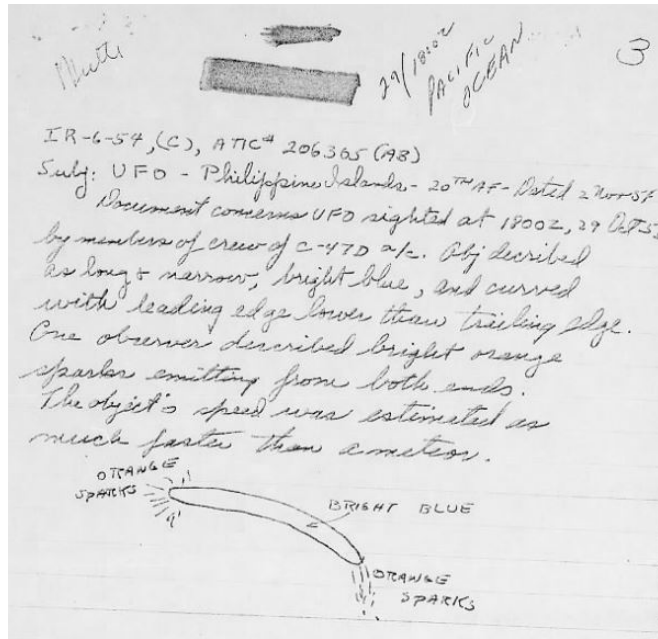 29/1800Z
PACIFIC
OCEAN
3
IR-6-54, (C), ATIC# 206365 (AB)
Subj: UFO - Philippine Islands - 20TH AF - Dated 2 Nov 54
Document concerns UFO sighted at 1800Z, 29 Oct 5
by members of crew of C-47D a/c. Obj decribed
as long & narrow, bright blue, and curved
with leading edge lower than trailing edge.
One observer described bright orange
sparks emitting from both ends.
The object's speed was estimated as
much faster than a meteor.
ORANGE
SPARKS
BRIGHT BLUE
ORANGE
SPARKS